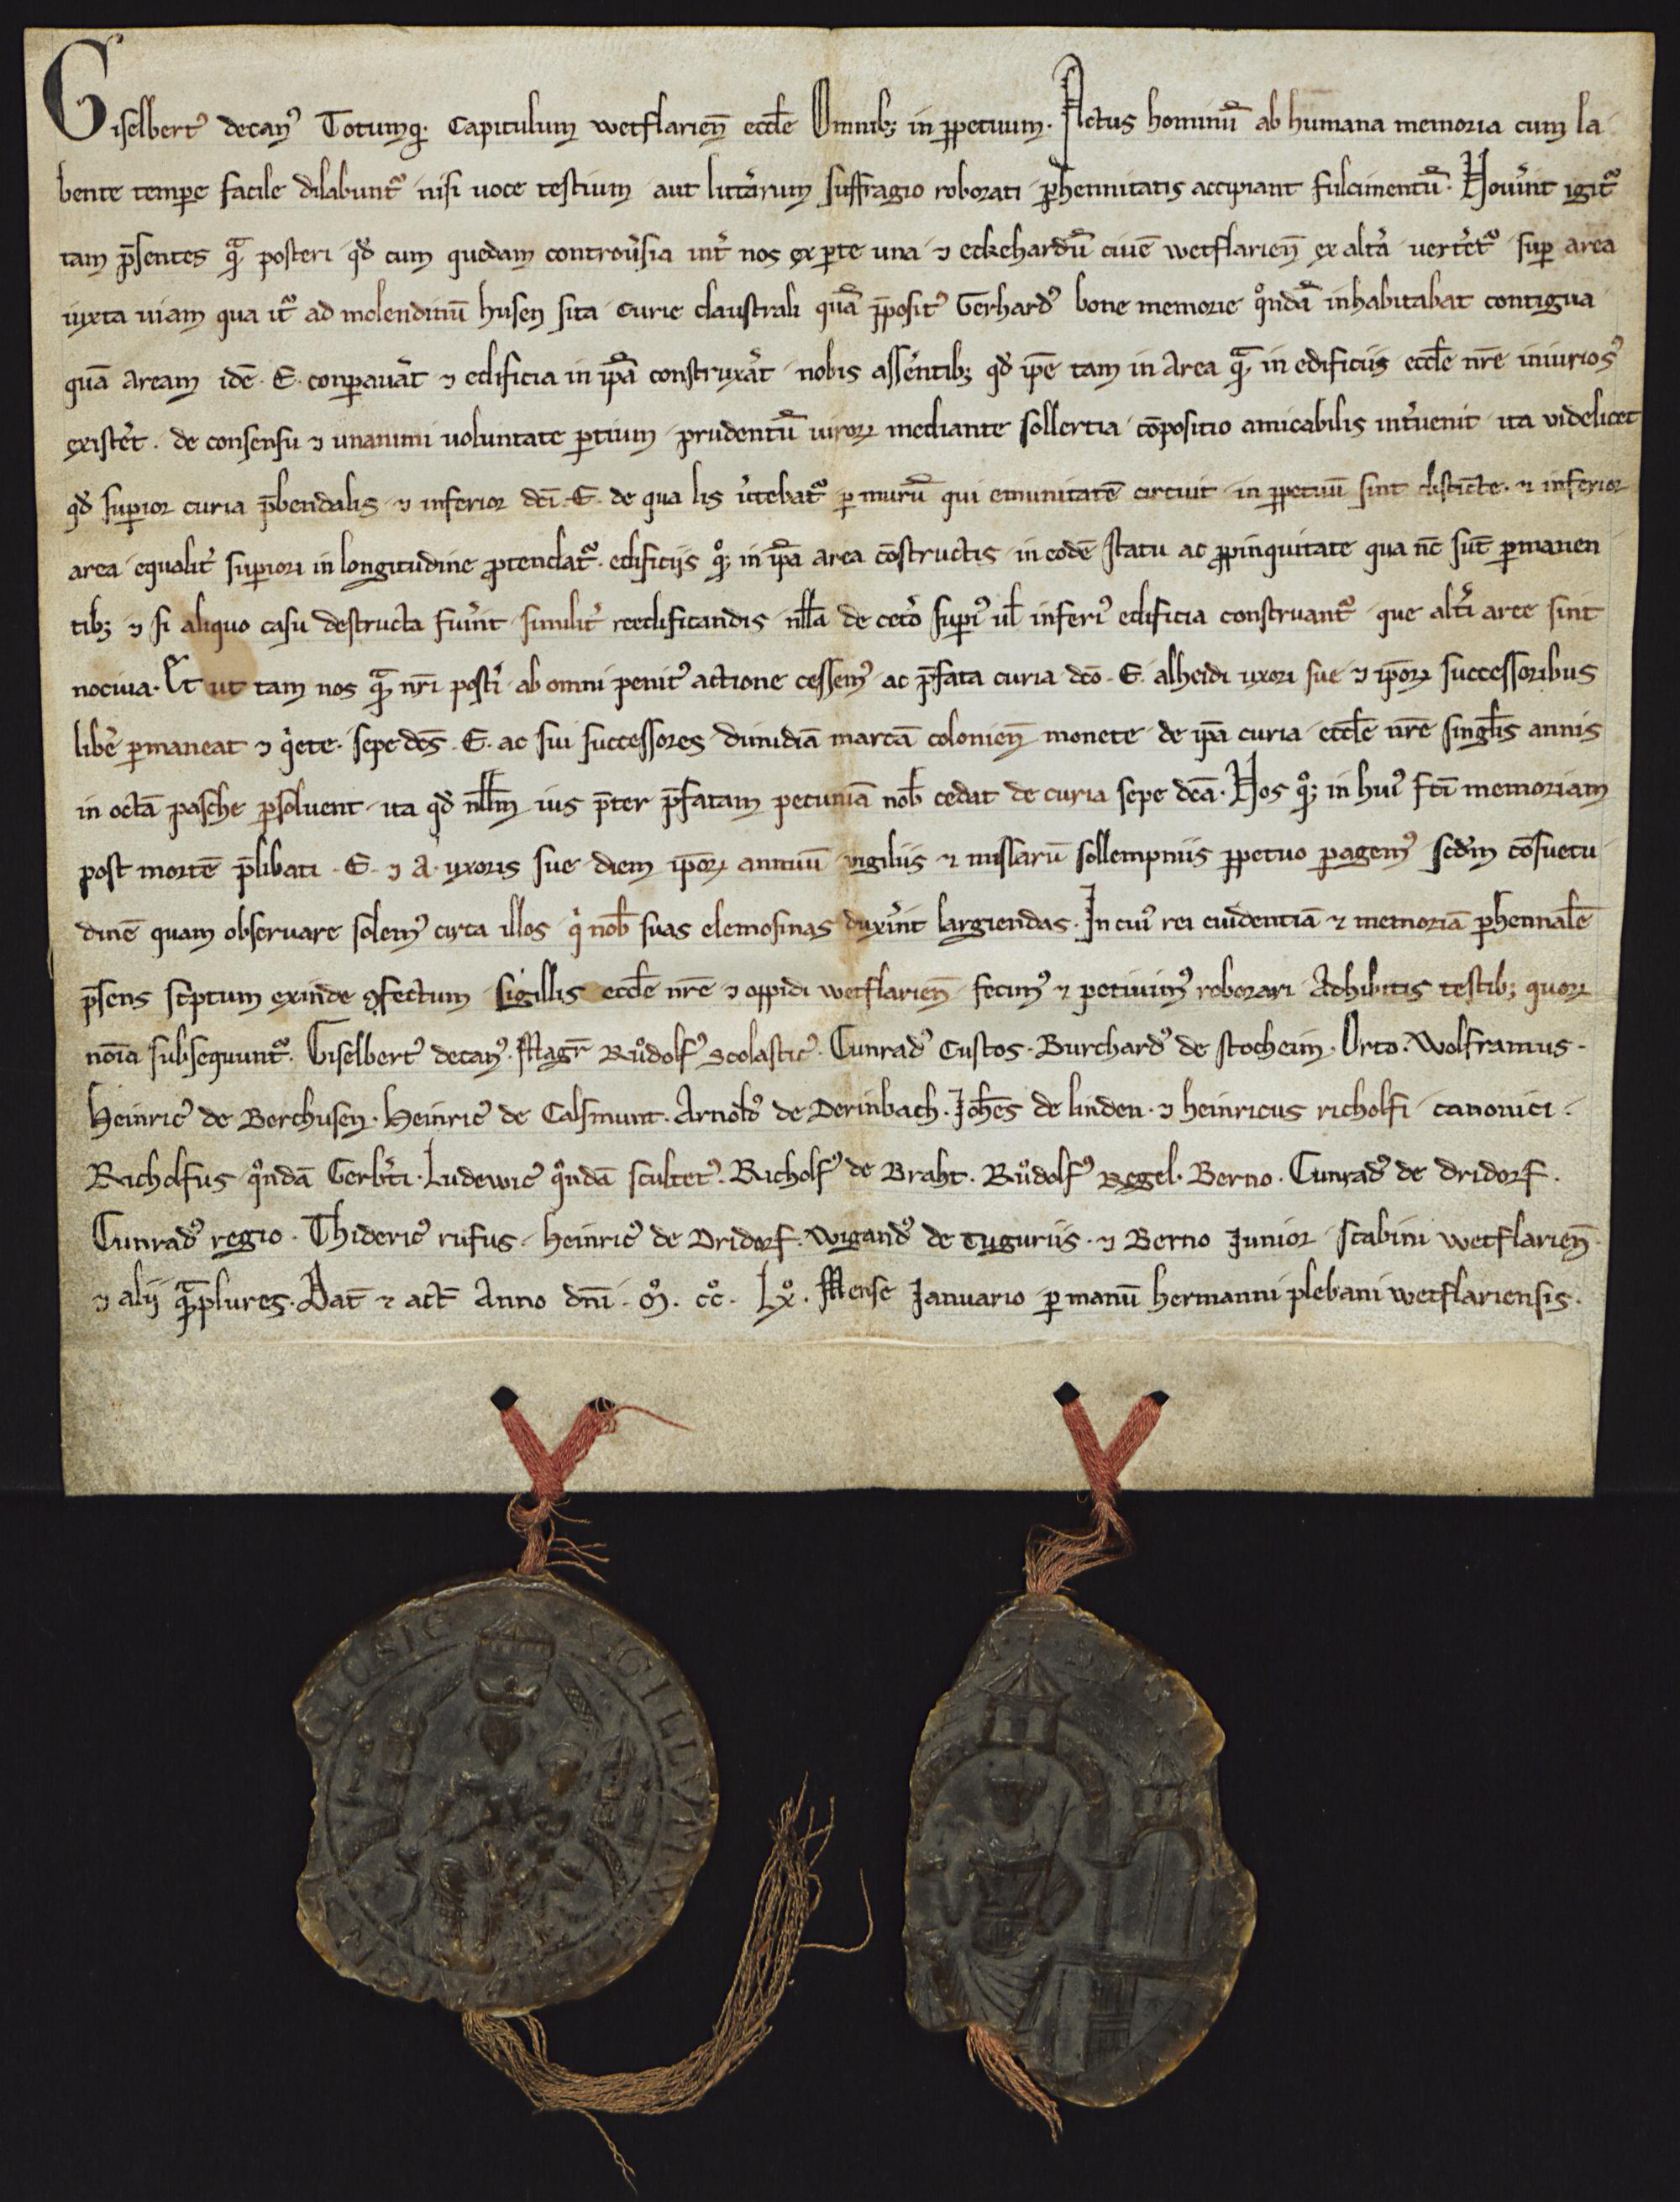 Giselbert᾽ decan᾽ Totumq. Capitulum wetflarien̄ eccl̄e Omnib; in ꝑpetuum. Actus hominū ab humana memoria cum la
bente tempe facile dilabunt᾽ nisi uoce testium aut litt̓arum suffragio roborati ꝑhennitatis accipiant fulcimentū. Nou̓int igit᾽
tam p̄sentes qua̅ posteri qd̄ cum quedam controu̓sia int̓ nos ex ꝑte una ⁊ eckehardū ciuē wetflarien̄ ex alt̓a uert̓et᾽ sup area
iuxta uiam qua it᾽ ad molendinū husen sita curie claustrali quā p̄posit᾽ Gerhard᾽ bone memorie qͦndā inhabitabat contigua
quā aream idē. E. conꝑau̓at ⁊ edificia in ip̄a construx̓at nobis ass̓entib; qd̄ ip̄e tam in area qua̅ in edificiis eccl̄e nr̄e iniurios᾽
exist̓et. de consensu ⁊ unanimi uoluntate ꝑtium prudentū uiroꝝ mediante sollertia cōpositio amicabilis int̓uenit ita videlicet
qd̄ suꝑior curia p̄bendalis ⁊ inferior dc̄i. E. de qua lis u̓tebat᾽ ꝑ murū qui emunitatē circuit in ꝑpetuū sint distīcte. ⁊ inferior
area equalit̓ suꝑiori in longitudine ꝓtendat᾽. edificiis qͦ; in ip̄a area cōstructis in eodē statu ac ꝓpinquitate qua nc̄ sūt ꝑmanen
tib; ⁊ si aliquo casu destructa fu̓int similit̓ reedificandis nll̄a de cet̓o suꝑi᾽ ul̄ inferi᾽ edificia construant᾽ que alt̓i aree sint
nociua. Et ut tam nos qua̅ nr̄i post̓i ab omni penit᾽ actione cessem᾽ ac p̄fata curia dc̄o. E. alheidi uxori sue ⁊ ip̄oꝝ successoribus
lib̓e ꝑmaneat ⁊ q̓ete. sepe dc̄s. E. ac sui successores dimidiā marcā colonien̄ monete de ip̄a curia eccl̄e nr̄e singl̄is annis
in octā pasche ꝑsoluent ita qd̄ nll̄m ius p̄ter p̄fatam pecuniā nob̄ cedat de curia sepe dc̄a. Nos qͦ; in hui᾽ fc̄i memoriam
post mortē p̄libati. E. ⁊ A. uxoris sue diem ip̄oꝝ annuū vigiliis ⁊ missarū sollempniis ꝑpetuo ꝑagem᾽ scd̄m cōsuetu
dinē quam obseruare solem᾽ circa illos q̓ nob̄ suas elemosinas dux̓int largiendas. In cui᾽ rei euidentiā ⁊ memoriā ꝑhennalē
p̄sens sc̓ptum exinde ꝯfectum sigillis eccl̄e nr̄e ⁊ oppidi wetflarien̄ fecim᾽ ⁊ petiuim᾽ roborari Adhibitis testib; quoꝝ
noīa subsequunt᾽. Giselbert᾽ decan᾽. Magr̄ Růdolf᾽ scolastic᾽. Cunrad᾽ Custos. Burchard᾽ de stocheim. Orto. Wolframus.
Heinric᾽ de Berchusen. Heinric᾽ de Calsmunt. Arnold᾽ de Derinbach. Joh̄es de linden. ⁊ heinricus richolfi canonici.
Richolfus qͦndā Gerb̓ti. Ludewic᾽ qͦndā scultet᾽. Richolf᾽ de Braht. Růdolf᾽ Regel. Berno. Cunrad᾽ de dridorf.
Cunrad᾽ regio. Thideric᾽ rufus. heinric᾽ de Dridorf. Wigand᾽ de Tuguriis. ⁊ Berno Junior scabini wetflarien̄
⁊ alij qua̅plures. Dat̄ ⁊ act̄ Anno dn̄i. Mͦ. ccͦ. Lxͦ. Mense Januario ꝑ manū hermanni plebani wetflariensis.
SIGILLVM